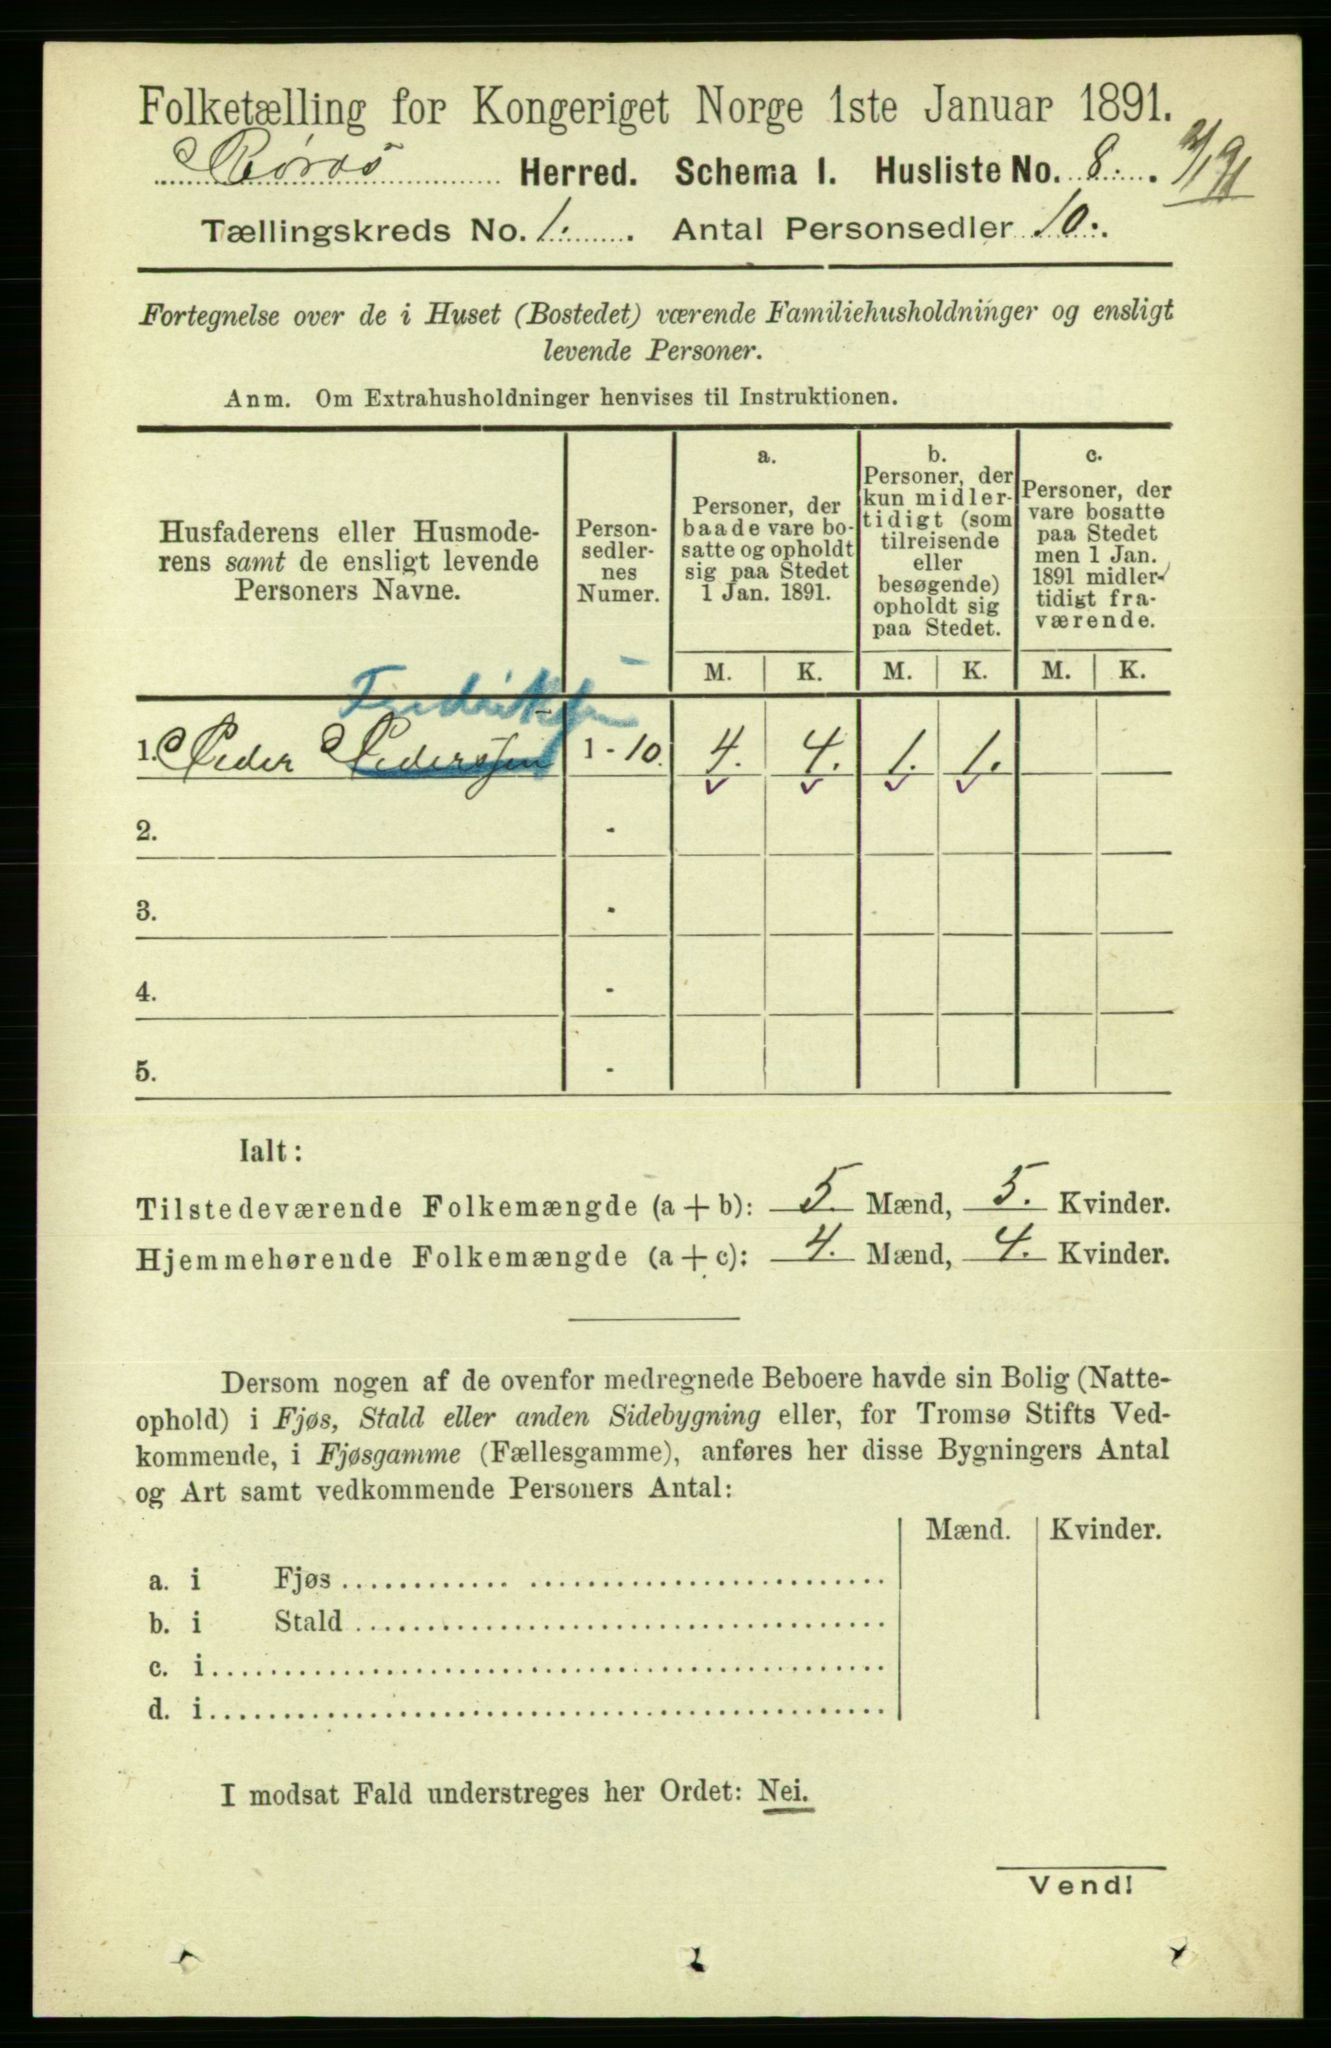 Folketælling for Kongeriget Norge 1ste Januar 1891.
Røros Herred. Schema I. Husliste No. 8.
Tællingskreds No. 1. Antal Personsedler 10.
Fortegnelse over de i Huset (Bostedet) værende Familiehusholdninger og ensligt
levende Personer.
Anm. Om Extrahusholdninger henvises til Instruktionen.
Husfaderens eller Husmode-
rens samt de ensligt levende
Personers Navne.
Person-
sedler-
nes
Numer.
a.
Personer, der
baade vare bo-
satte og opholdt
sig paa Stedet
1 Jan. 1891.
b.
Personer, der
kun midler-
tidigt (som
tilreisende
eller
besøgende)
opholdt sig
paa Stedet.
c.
Personer, der
vare bosatte
paa Stedet
men 1 Jan.
1891 midler-
tidigt fra-
værende.
M. K. M. K. M. K.
Fredriksen
1. Peder Pedersen 1 - 10. 4. 4. 1. 1.
2. -
3. -
4. -
5. -
Ialt:
Tilstedeværende Folkemængde (a + b): 5. Mænd, 5. Kvinder.
Hjemmehørende Folkemængde (a + c): 4. Mænd, 4. Kvinder.
Dersom nogen af de ovenfor medregnede Beboere havde sin Bolig (Natte-
ophold) i Fjøs, Stald eller anden Sidebygning eller, for Tromsø Stifts Ved-
kommende, i Fjøsgamme (Fællesgamme), anføres her disse Bygningers Antal
og Art samt vedkommende Personers Antal:
Mænd. Kvinder.
a. i Fjøs
b. i Stald
c. i
d. i
I modsat Fald understreges her Ordet: Nei.
Vend!